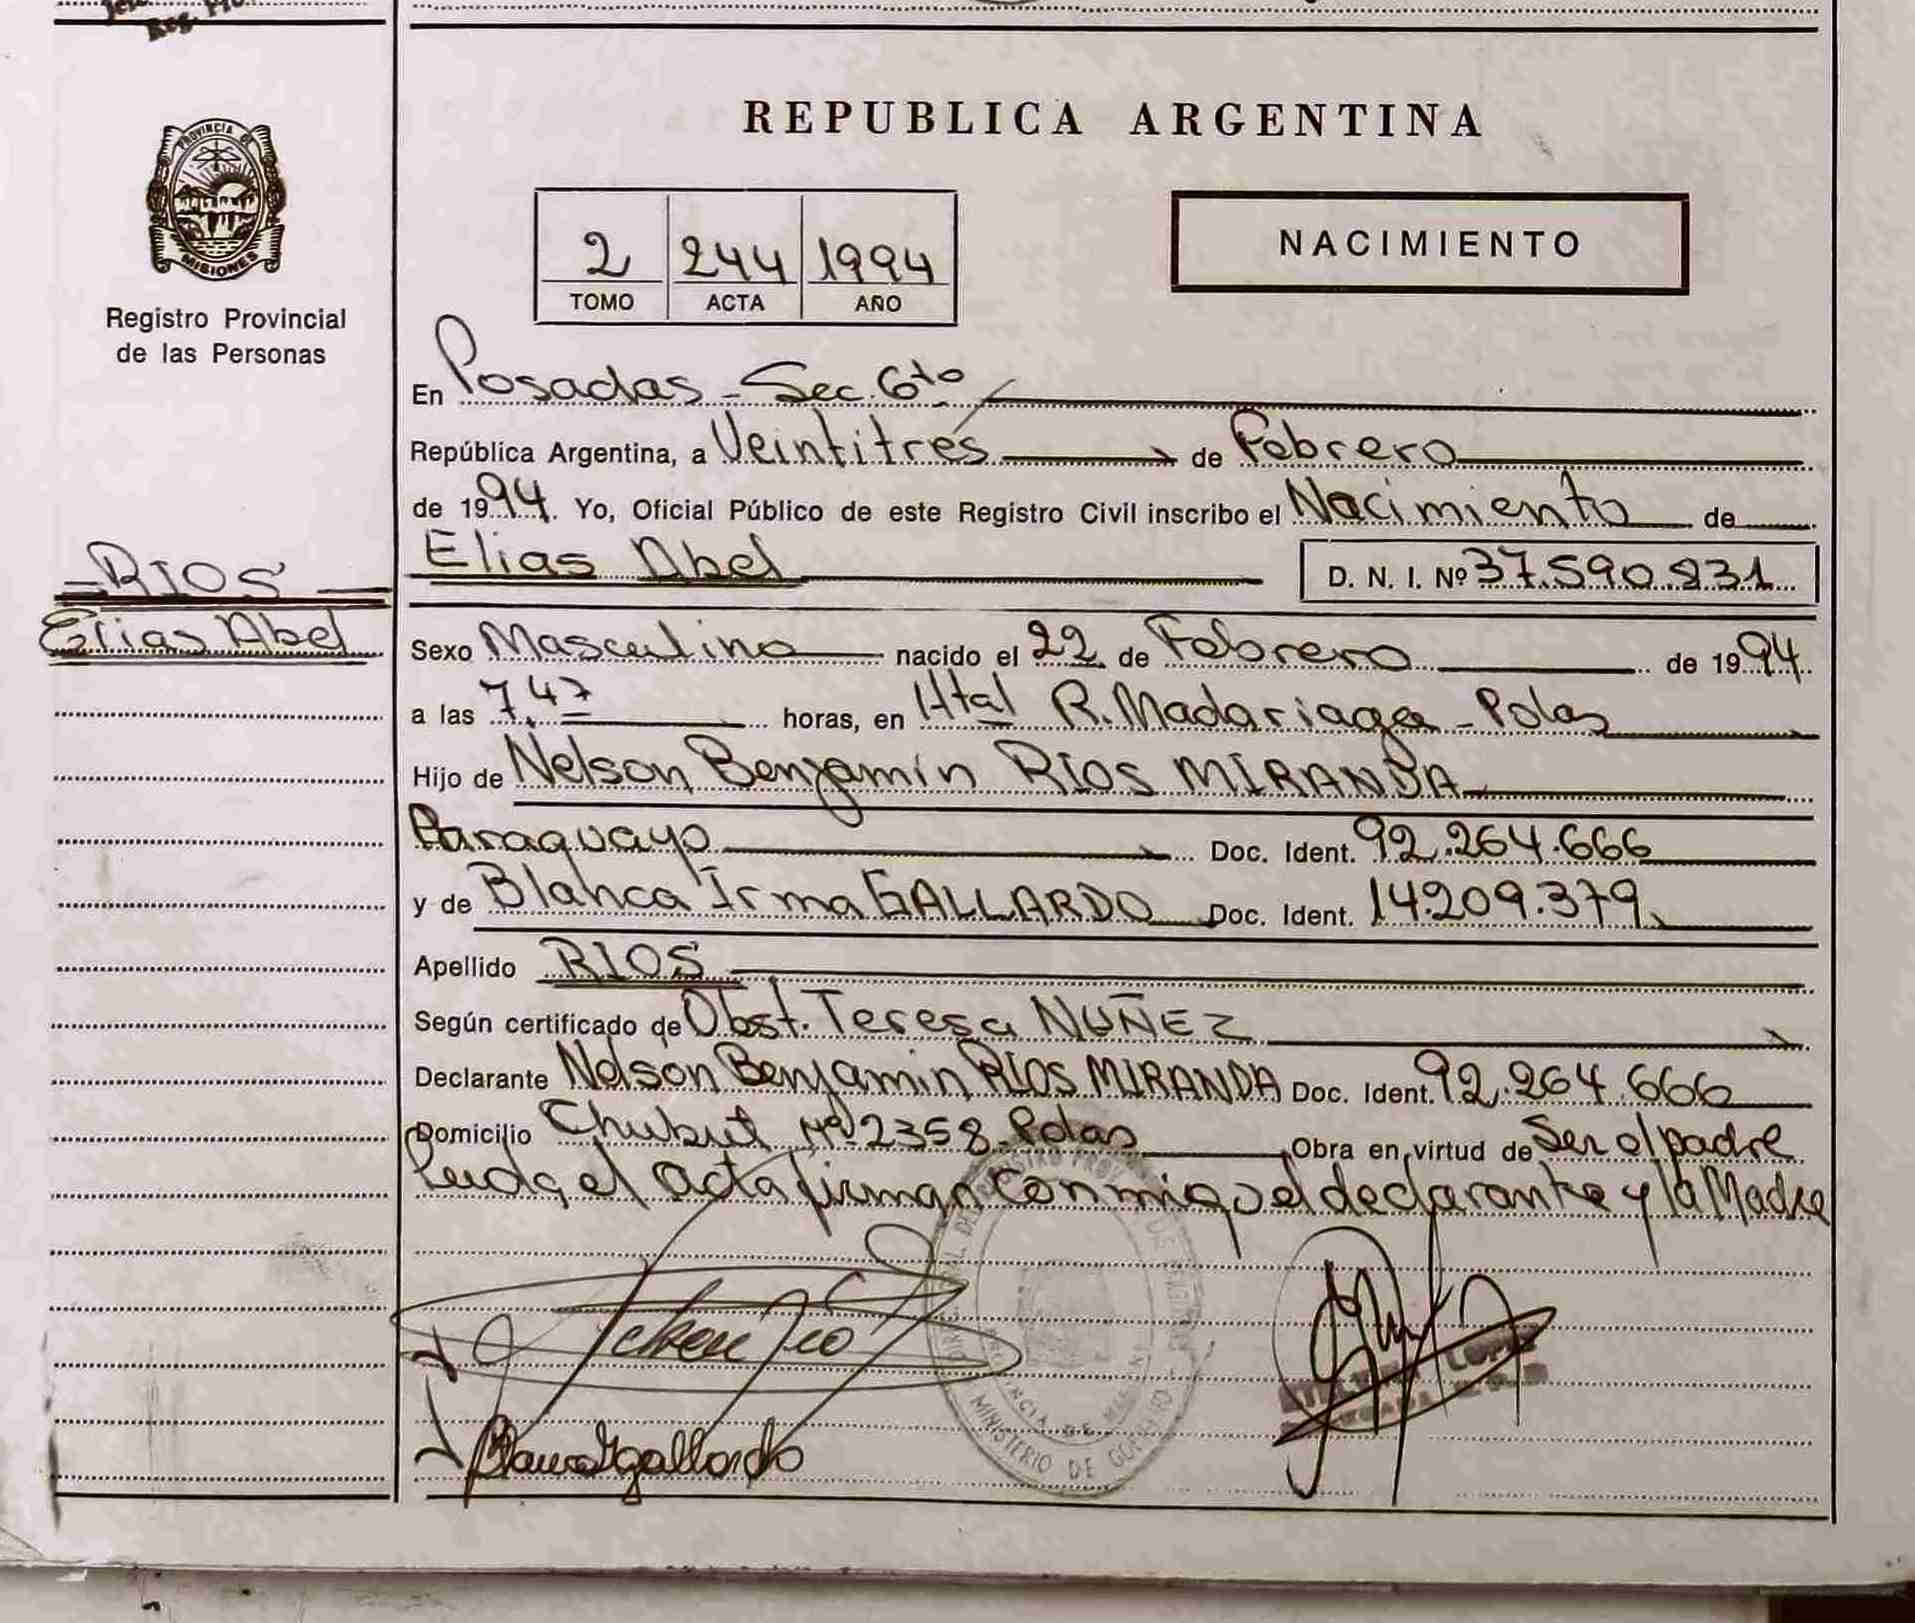 Reg.
PROVINCIA DE
MISIONES
Registro Provincial
de las Personas
RIOS
Elias Abel
REPUBLICA ARGENTINA
2 244 1994
TOMO ACTA AÑO
NACIMIENTO
En Posadas - Sec. 6to
República Argentina, a Veintitrés de Febrero
de 1994. Yo, Oficial Público de este Registro Civil inscribo el Nacimiento de
Elias Abel D. N. I. Nº 37.590.831
Sexo Masculino nacido el 22 de Febrero de 1994
a las 7,47 horas, en Htal R. Madariaga - Pdas
Hijo de Nelson Benjamín Ríos MIRANDA
Paraguayo Doc. Ident. 92.264.666
y de Blanca Irma GALLARDO Doc. Ident. 14.209.379
Apellido RIOS
Según certificado de Obst. Teresa NUÑEZ
Declarante Nelson Benjamin RIOS MIRANDA Doc. Ident. 92.264.666
Domicilio Chubut Nº 2358 - Pdas Obra en virtud de Ser el padre
Leida el acta firman conmigo el declarante y la Madre
MINISTERIO DE GOBIERNO
LOPEZ
Blanca I gallardo